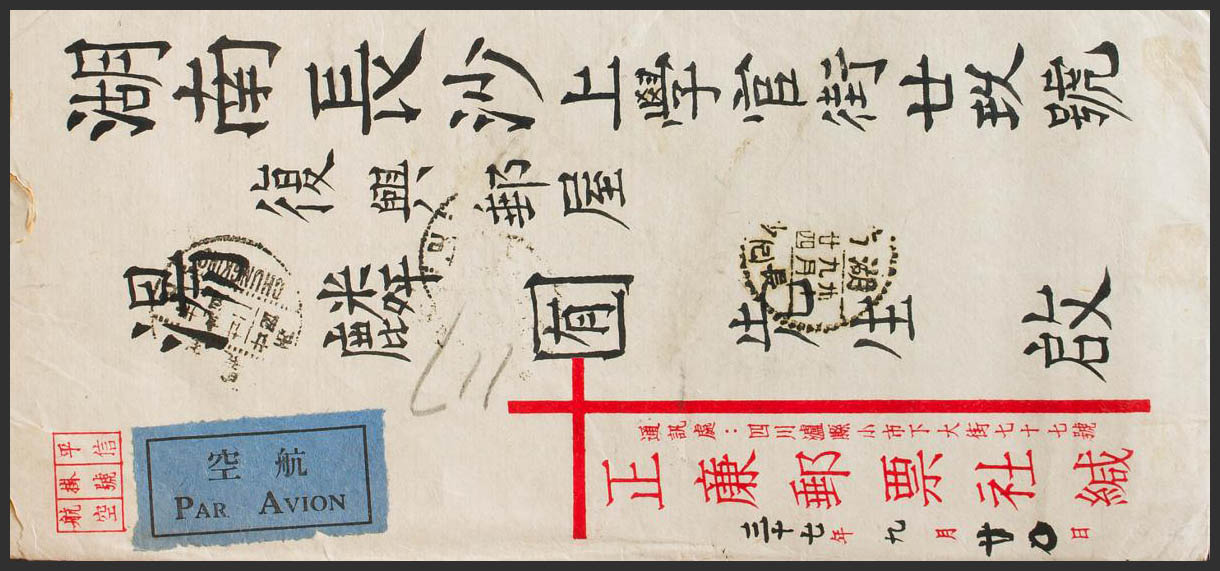 湖南長沙上學宮街廿玖號
復興郵屋
湯麟囿先生 啟
通訊處：四川瀘縣小市下大街七十七號
正廉郵票社緘
三十七年九月廿〇日
平信
掛號
航空
航空
PAR AVION
CHUNGKING